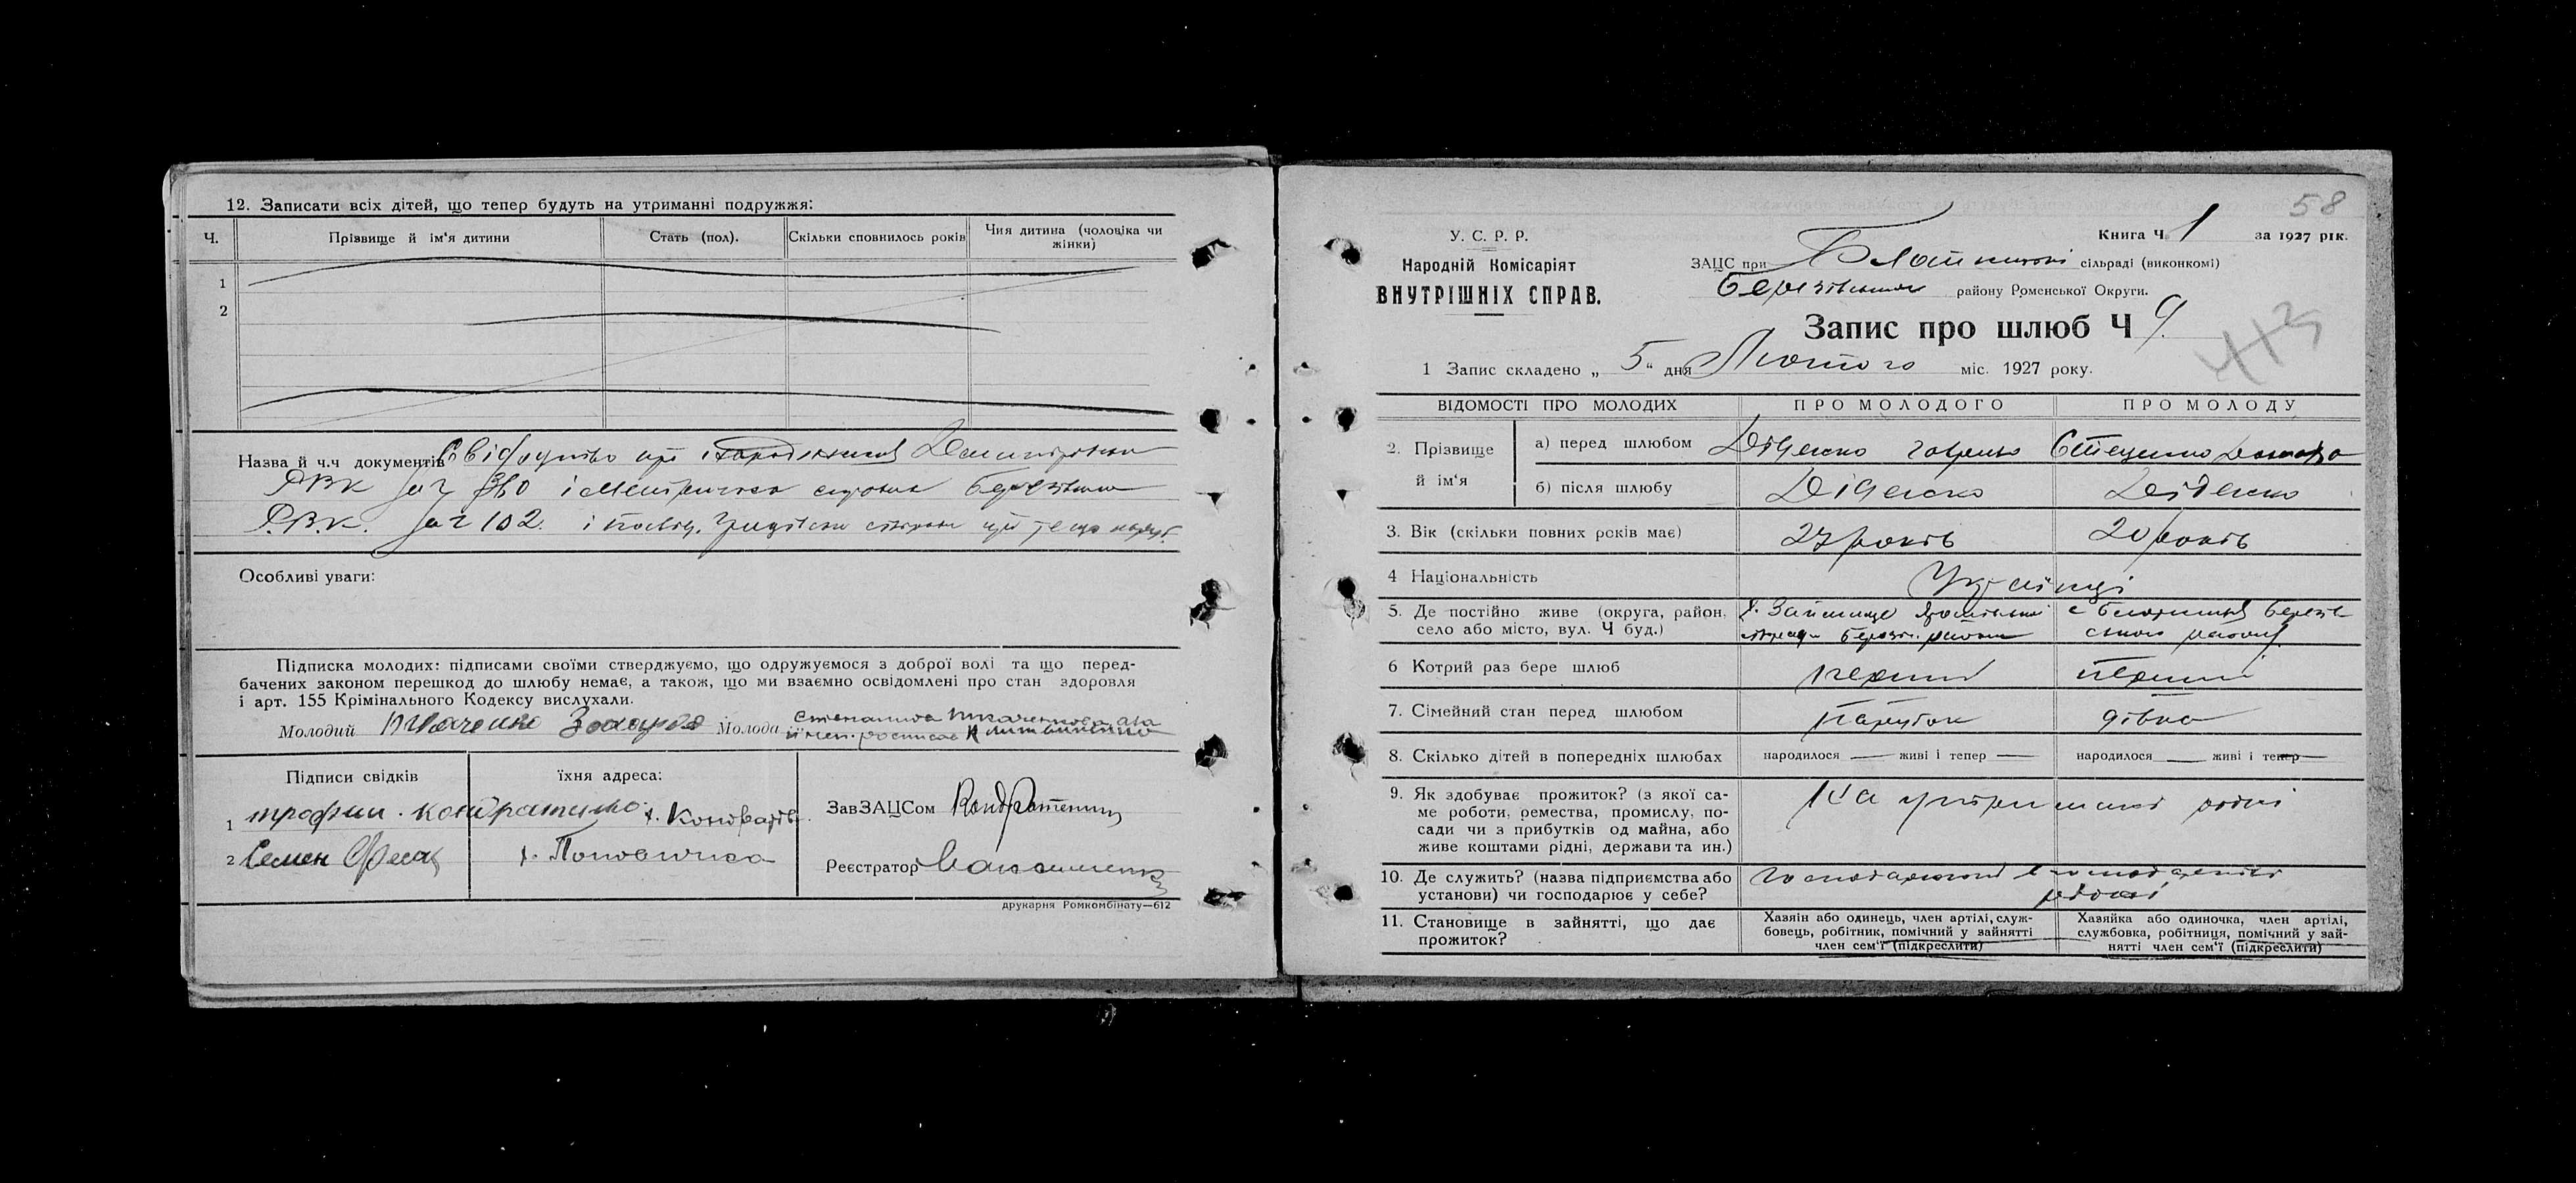 12. Записати всіх дітей, що тепер будуть на утриманні подружжя:
Ч. Прізвище й ім'я дитини Стать (пол). Скільки сповнилось років Чия дитина (чоловіка чи жінки)
1
2
Назва й ч.ч документів Свідоцтво про
РВК за ч 360 і Метрична
Р.В.К. за ч 102. і
Особливі уваги:
Підписка молодих: підписами своїми стверджуємо, що одружуємося з доброї волі та що перед-
бачених законом перешкод до шлюбу немає, а також, що ми взаємно освідомлені про стан здоровля
і арт. 155 Крімінального Кодексу вислухали.
Молодий Ткаченко Захарко Молода
Підписи свідків їхня адреса:
1 трофим. кондратенко х.
2 Семен х. Поповичка
ЗавЗАЦСом Кондратенко
Реєстратор
друкарня Ромкомбінату—612
58
У. С. Р. Р.
Народній Комісаріят
ВНУТРІШНІХ СПРАВ.
Книга Ч. 1 за 1927 рік.
ЗАЦС при сільраді (виконкомі)
Березівськом району Роменської Округи.
Запис про шлюб Ч 9.
113
1 Запис складено „ 5 “ дня Лютого міс. 1927 року.
ВІДОМОСТІ ПРО МОЛОДИХ ПРО МОЛОДОГО ПРО МОЛОДУ
2. Прізвище й ім'я
а) перед шлюбом Діденко Стеценко
б) після шлюбу Діденко Діденко
3. Вік (скільки повних років має) 27 років 20 років
4 Національність Українці
5. Де постійно живе (округа, район,
село або місто, вул. Ч буд.)
х. Займище
району
6 Котрий раз бере шлюб перший перший
7. Сімейний стан перед шлюбом парубок дівка
8. Скілько дітей в попередніх шлюбах народилося — живі і тепер — народилося — живі і тепер —
9. Як здобуває прожиток? (з якої са-
ме роботи, ремества, промислу, по-
сади чи з прибутків од майна, або
живе коштами рідні, держави та ин.)
На утриманні рідні
10. Де служить? (назва підприємства або
установи) чи господарює у себе?
рідні
11. Становище в зайнятті, що дає
прожиток?
Хазяїн або одинець, член артілі, служ-
бовець, робітник, помічний у зайнятті
член сем'ї (підкреслити)
Хазяйка або одиночка, член артілі,
службовка, робітниця, помічний у зай-
нятті член сем'ї (підкреслити)